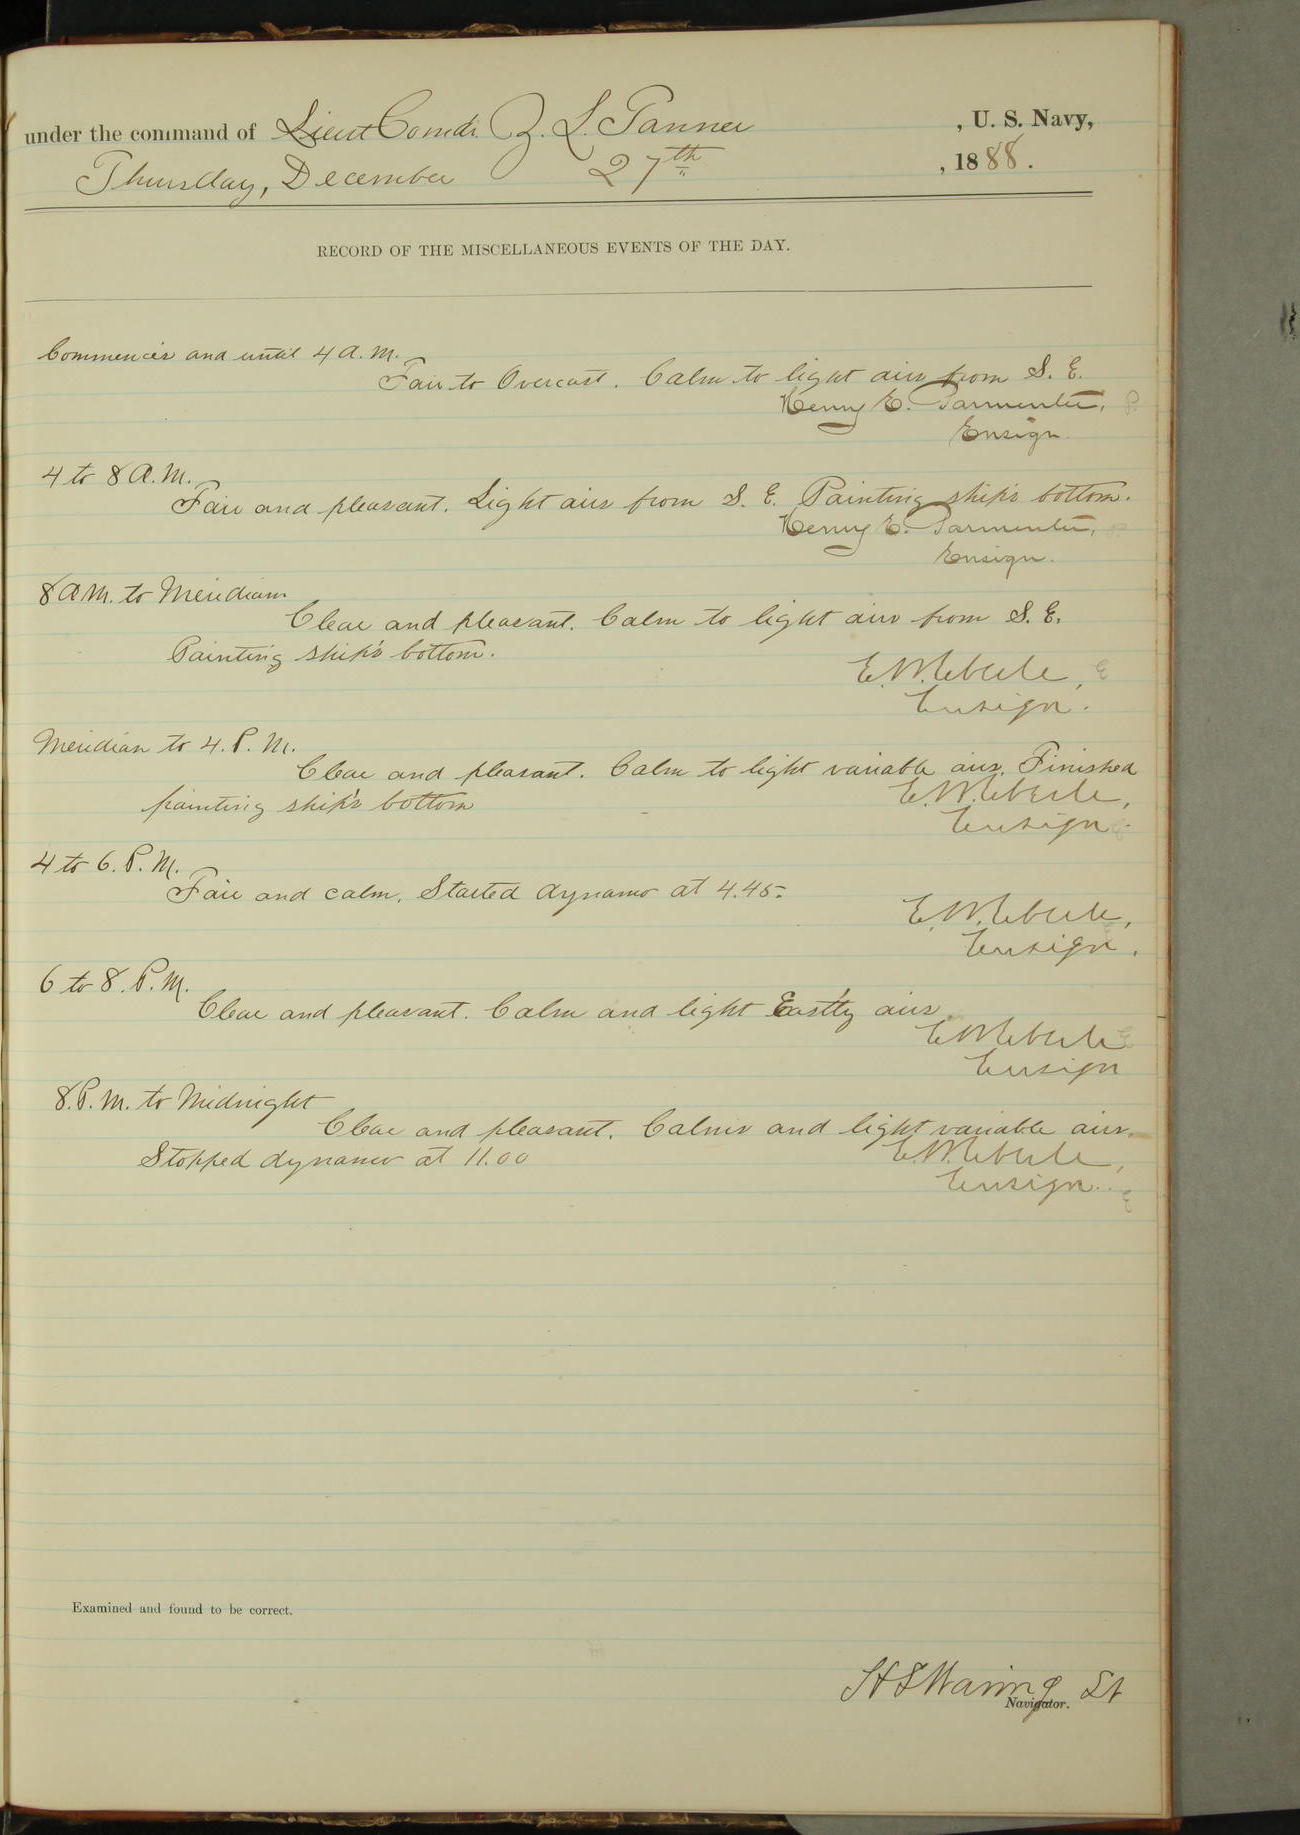 under the command of Lieut Comdr. Z. L. Tanner, U. S. Navy,
Thursday, December 27th, 1888.
RECORD OF THE MISCELLANEOUS EVENTS OF THE DAY.
Commences and until 4 A.M.
Fair to Overcast. Calm to light airs from S. E.
Henry E. Parmenter,
Ensign.
4 to 8 A.M.
Fair and pleasant. Light airs from S. E. Painting ship's bottom.
Henry E. Parmenter,
Ensign.
8 A.M. to Meridian
Clear and pleasant. Calm to light airs from S. E.
Painting ship's bottom.
E.W. Eberle,
Ensign.
Meridian to 4. P. M.
Clear and pleasant. Calm to light variable airs. Finished
painting ship's bottom
E.W. Eberle,
Ensign.
4 to 6. P. M.
Fair and calm. Started dynamo at 4.45.
E.W. Eberle,
Ensign.
6 to 8. P.M.
Clear and pleasant. Calm and light East'ly airs
E W Eberle
Ensign
8. P. M. to Midnight
Clear and pleasant. Calms and light variable airs.
Stopped dynamo at 11.00
E.W. Eberle,
Ensign.
Examined and found to be correct.
H S Waring Lt
Navigator.